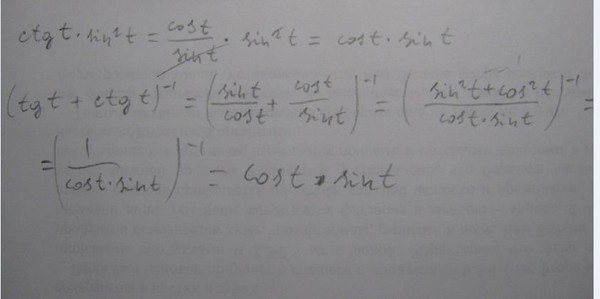 ctg t · sin²t = cost/sint · sin²t = cost · sint
(tg t + ctg t)⁻¹ = (sint/cost + cost/sint)⁻¹ = (sin²t + cos²t/cost · sint)⁻¹ =
= (1/cost · sint)⁻¹ = cost · sint